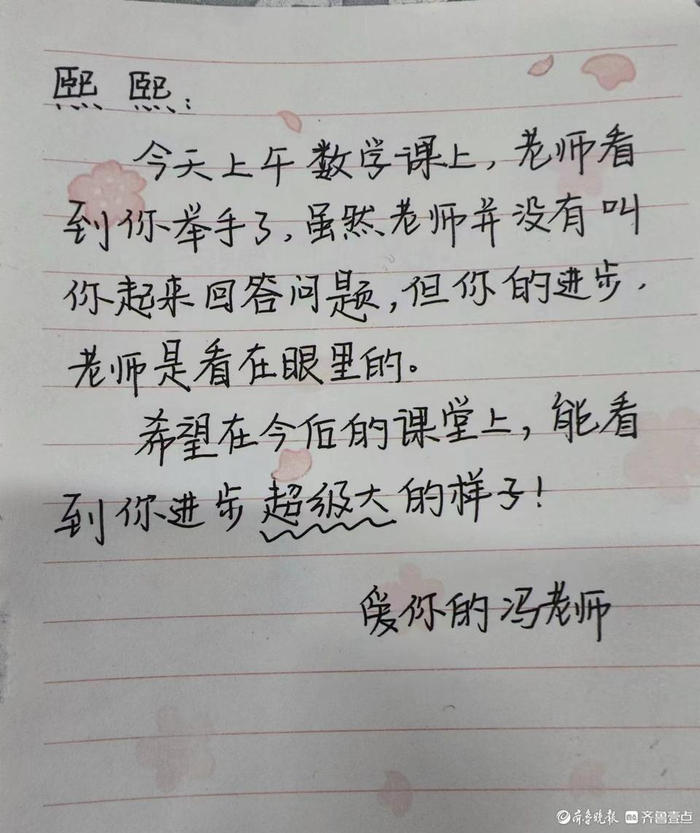 熙熙：
今天上午数学课上，老师看
到你举手了，虽然老师并没有叫
你起来回答问题，但你的进步，
老师是看在眼里的。
希望在今后的课堂上，能看
到你进步超级大的样子！
爱你的冯老师
齐鲁晚报 齐鲁壹点